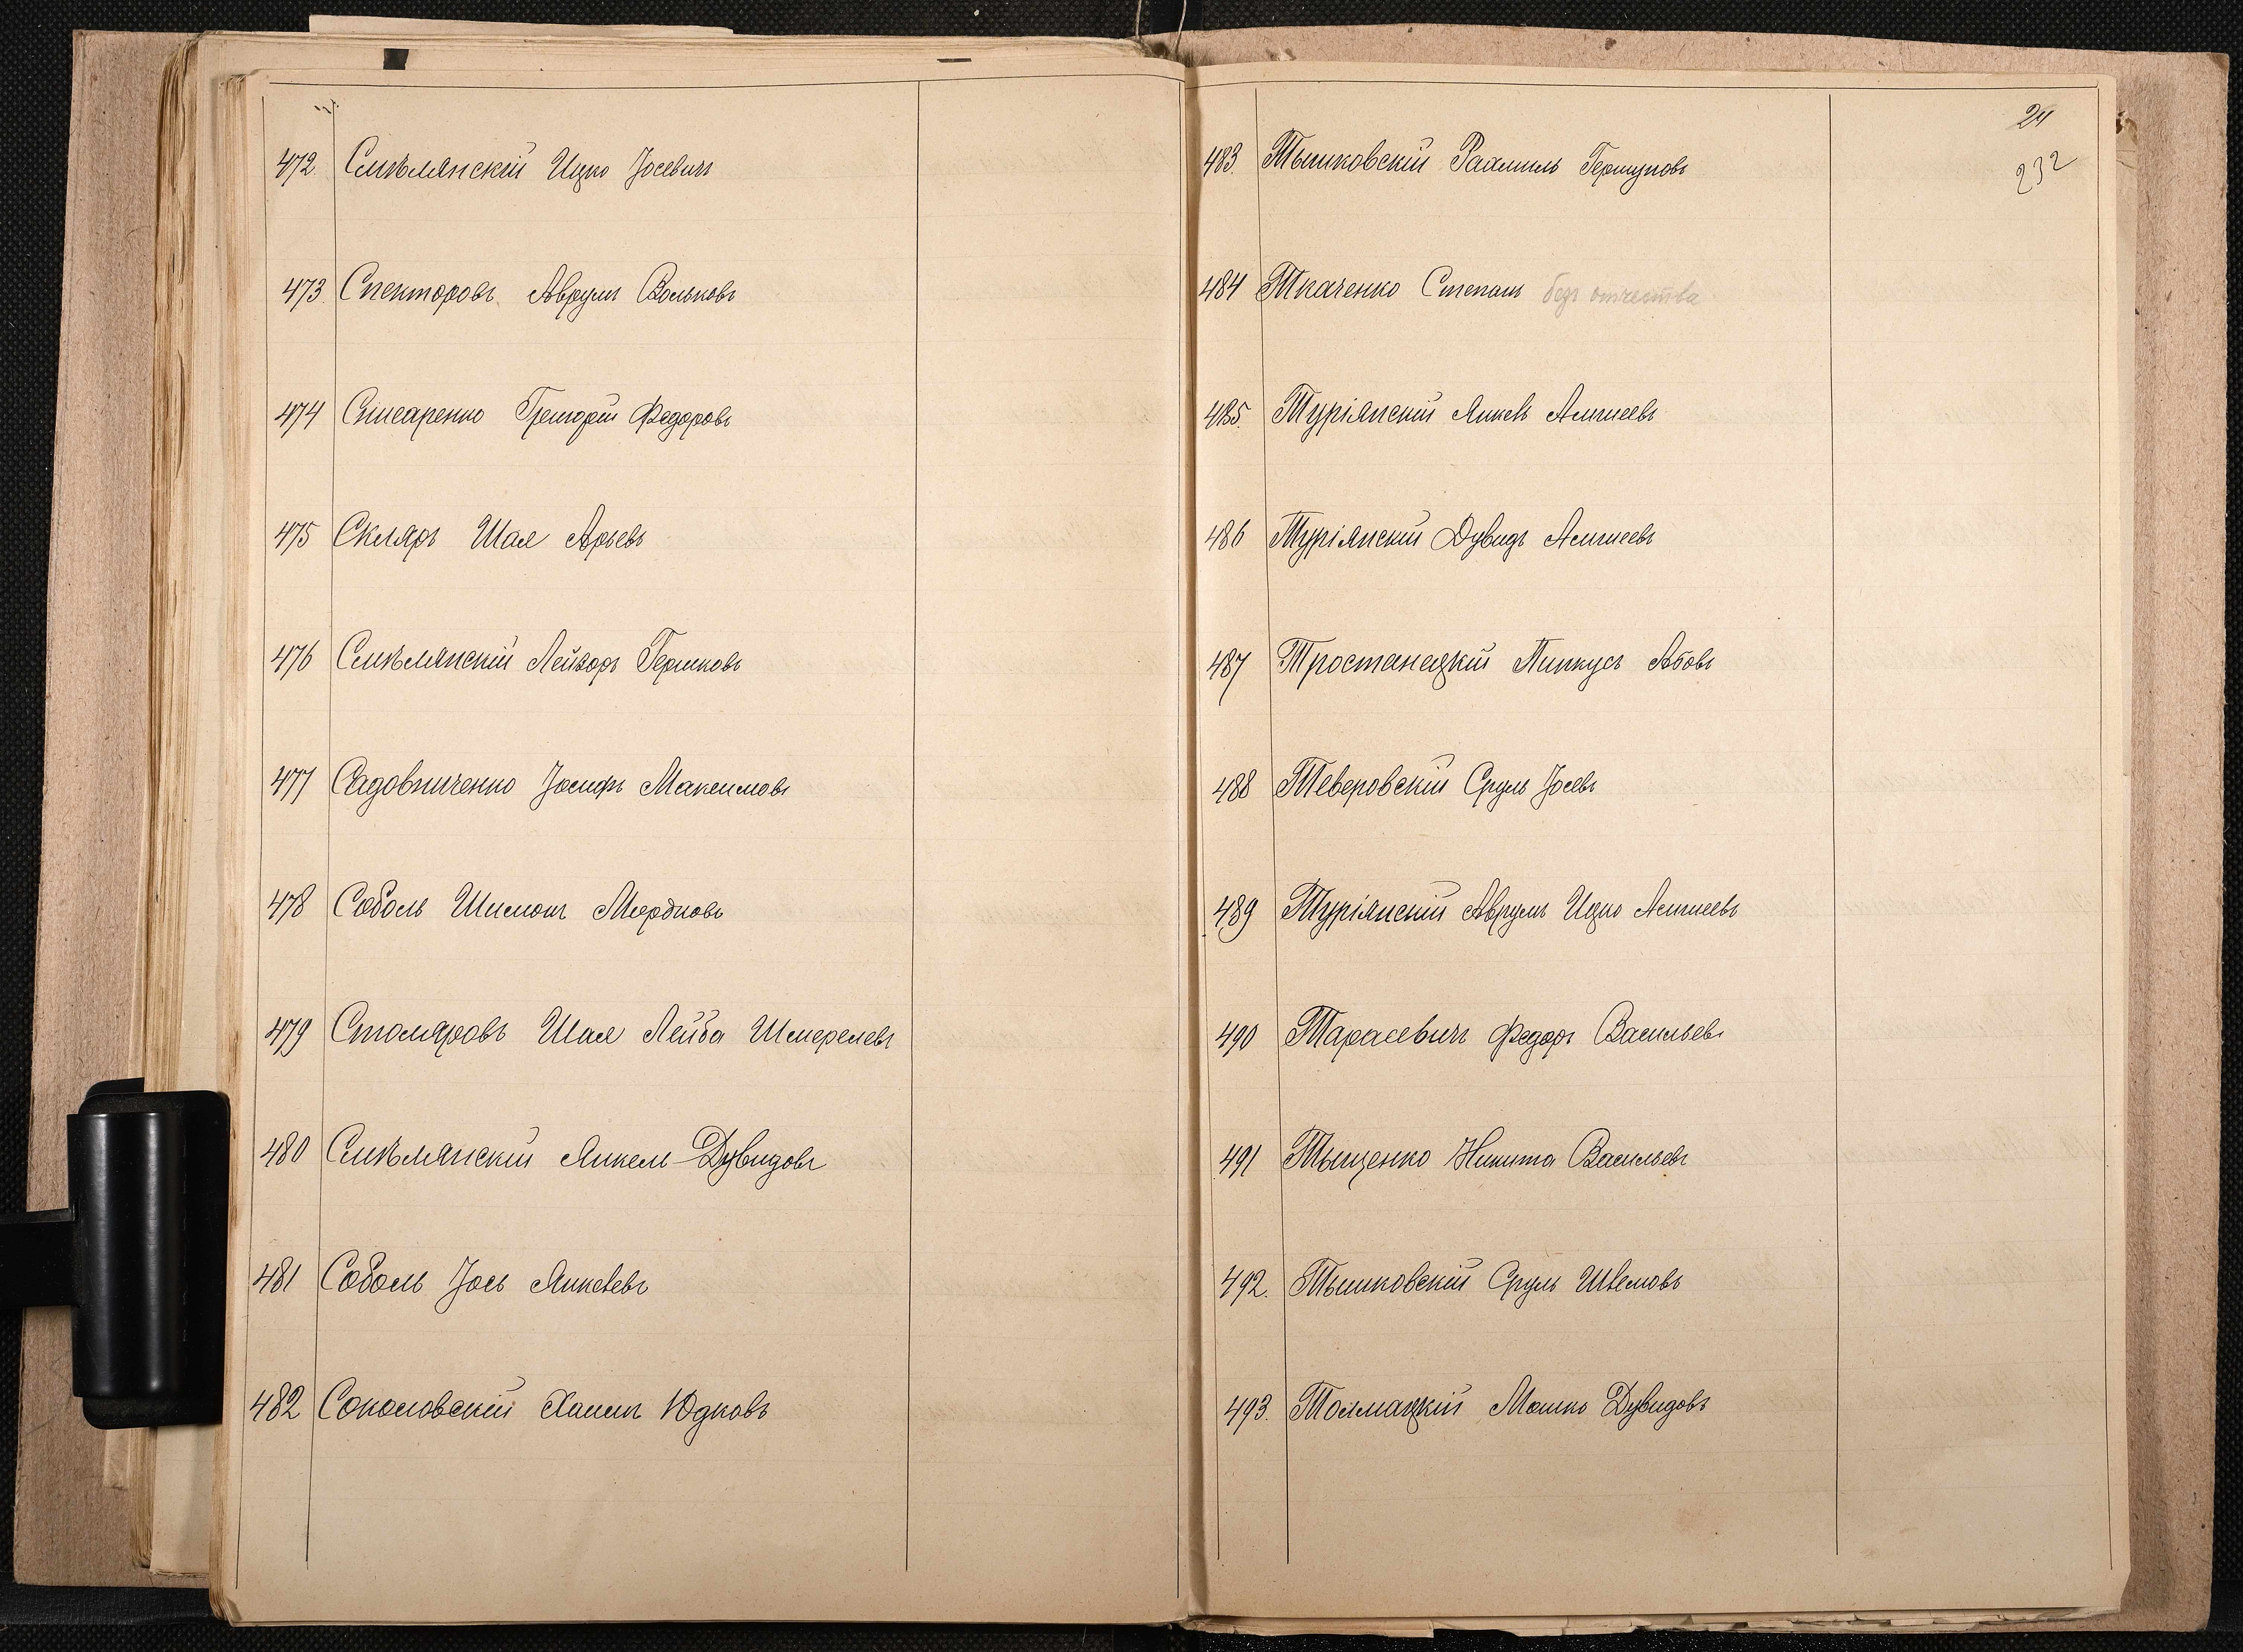 472. Смѣлянскій Ицко Іосевичъ
473. Спекторовъ Аврумъ Вольковъ
474 Слисаренко Григорій Федоровъ
475 Скляръ Шая Арьевъ
476 Смѣлянскій Лейзоръ Гершковъ
477 Садовниченко Іосифъ Максимовъ
478 Соболь Шимонъ Мордковъ
479 Столяровъ Шая Лейба Шмерелевъ
480 Смѣлянскій Янкель-Дувидовъ
481 Соболь Іось Янкелевъ
482 Соколовскій Хаимъ Юдковъ
24
232
483. Тышковскій Рахмиль Гершуновъ
484 Ткаченко Степанъ безъ отчества
485. Турiянскій Янкель
486 Турiянскій Дувидъ
487 Тростанецкій Пинкусъ Абовъ
488 Теверовскій Сруль Іосевъ
489 Турiянскій Аврумъ Ицко
490 Тарасевичъ Федоръ Васильевъ
491 Тыщенко Никита Васильевъ
492. Тышковскій Сруль
493. Толмацкій Мошко Дувидовъ